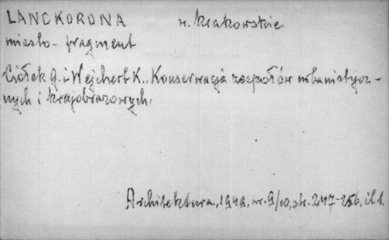 LANCKORONA w. krakowskie
miasto - fragment
Ciołek G. i Wejchert K., Konserwacja zespołów urbanistycz-
nych i krajobrazowych.
Architektura, 1949, nr. 9/10, str. 247-256, il.